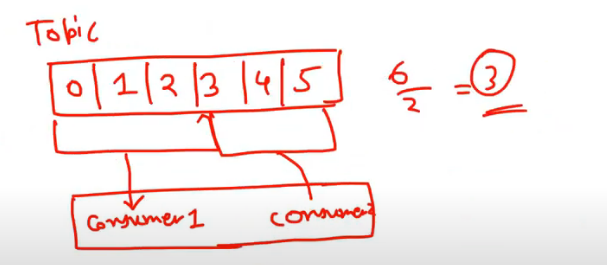 Topic
0 1 2 3 4 5
6/2 = 3
Consumer1 consumer2